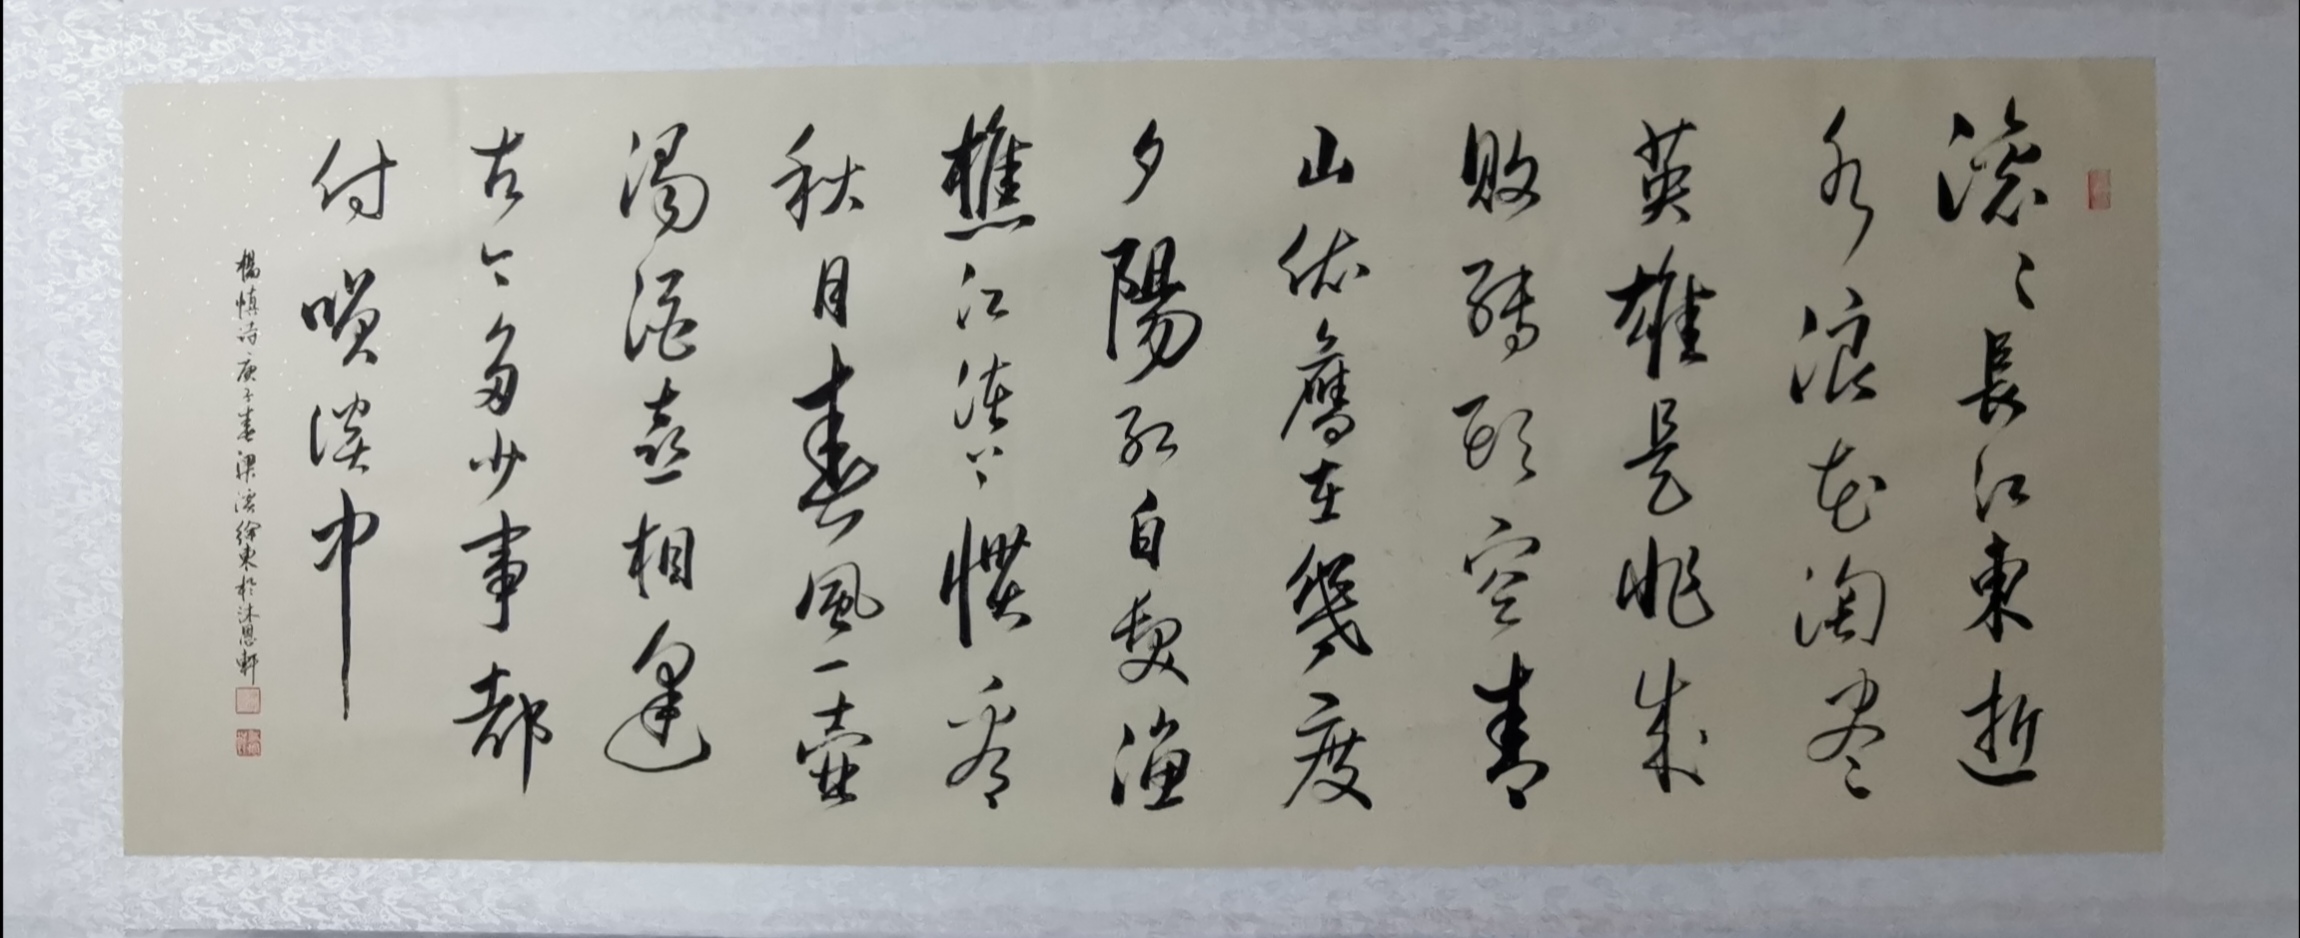 滚〻長江東逝
水浪花淘尽
英雄是非成
敗轉頭空青
山依舊在幾度
夕陽紅自髪漁
樵江渚上慣看
秋月春風一壷
濁酒喜相逢
古今多少事都
付笑談中
楊慎诗庚子春梁溪徐東於沐恩軒